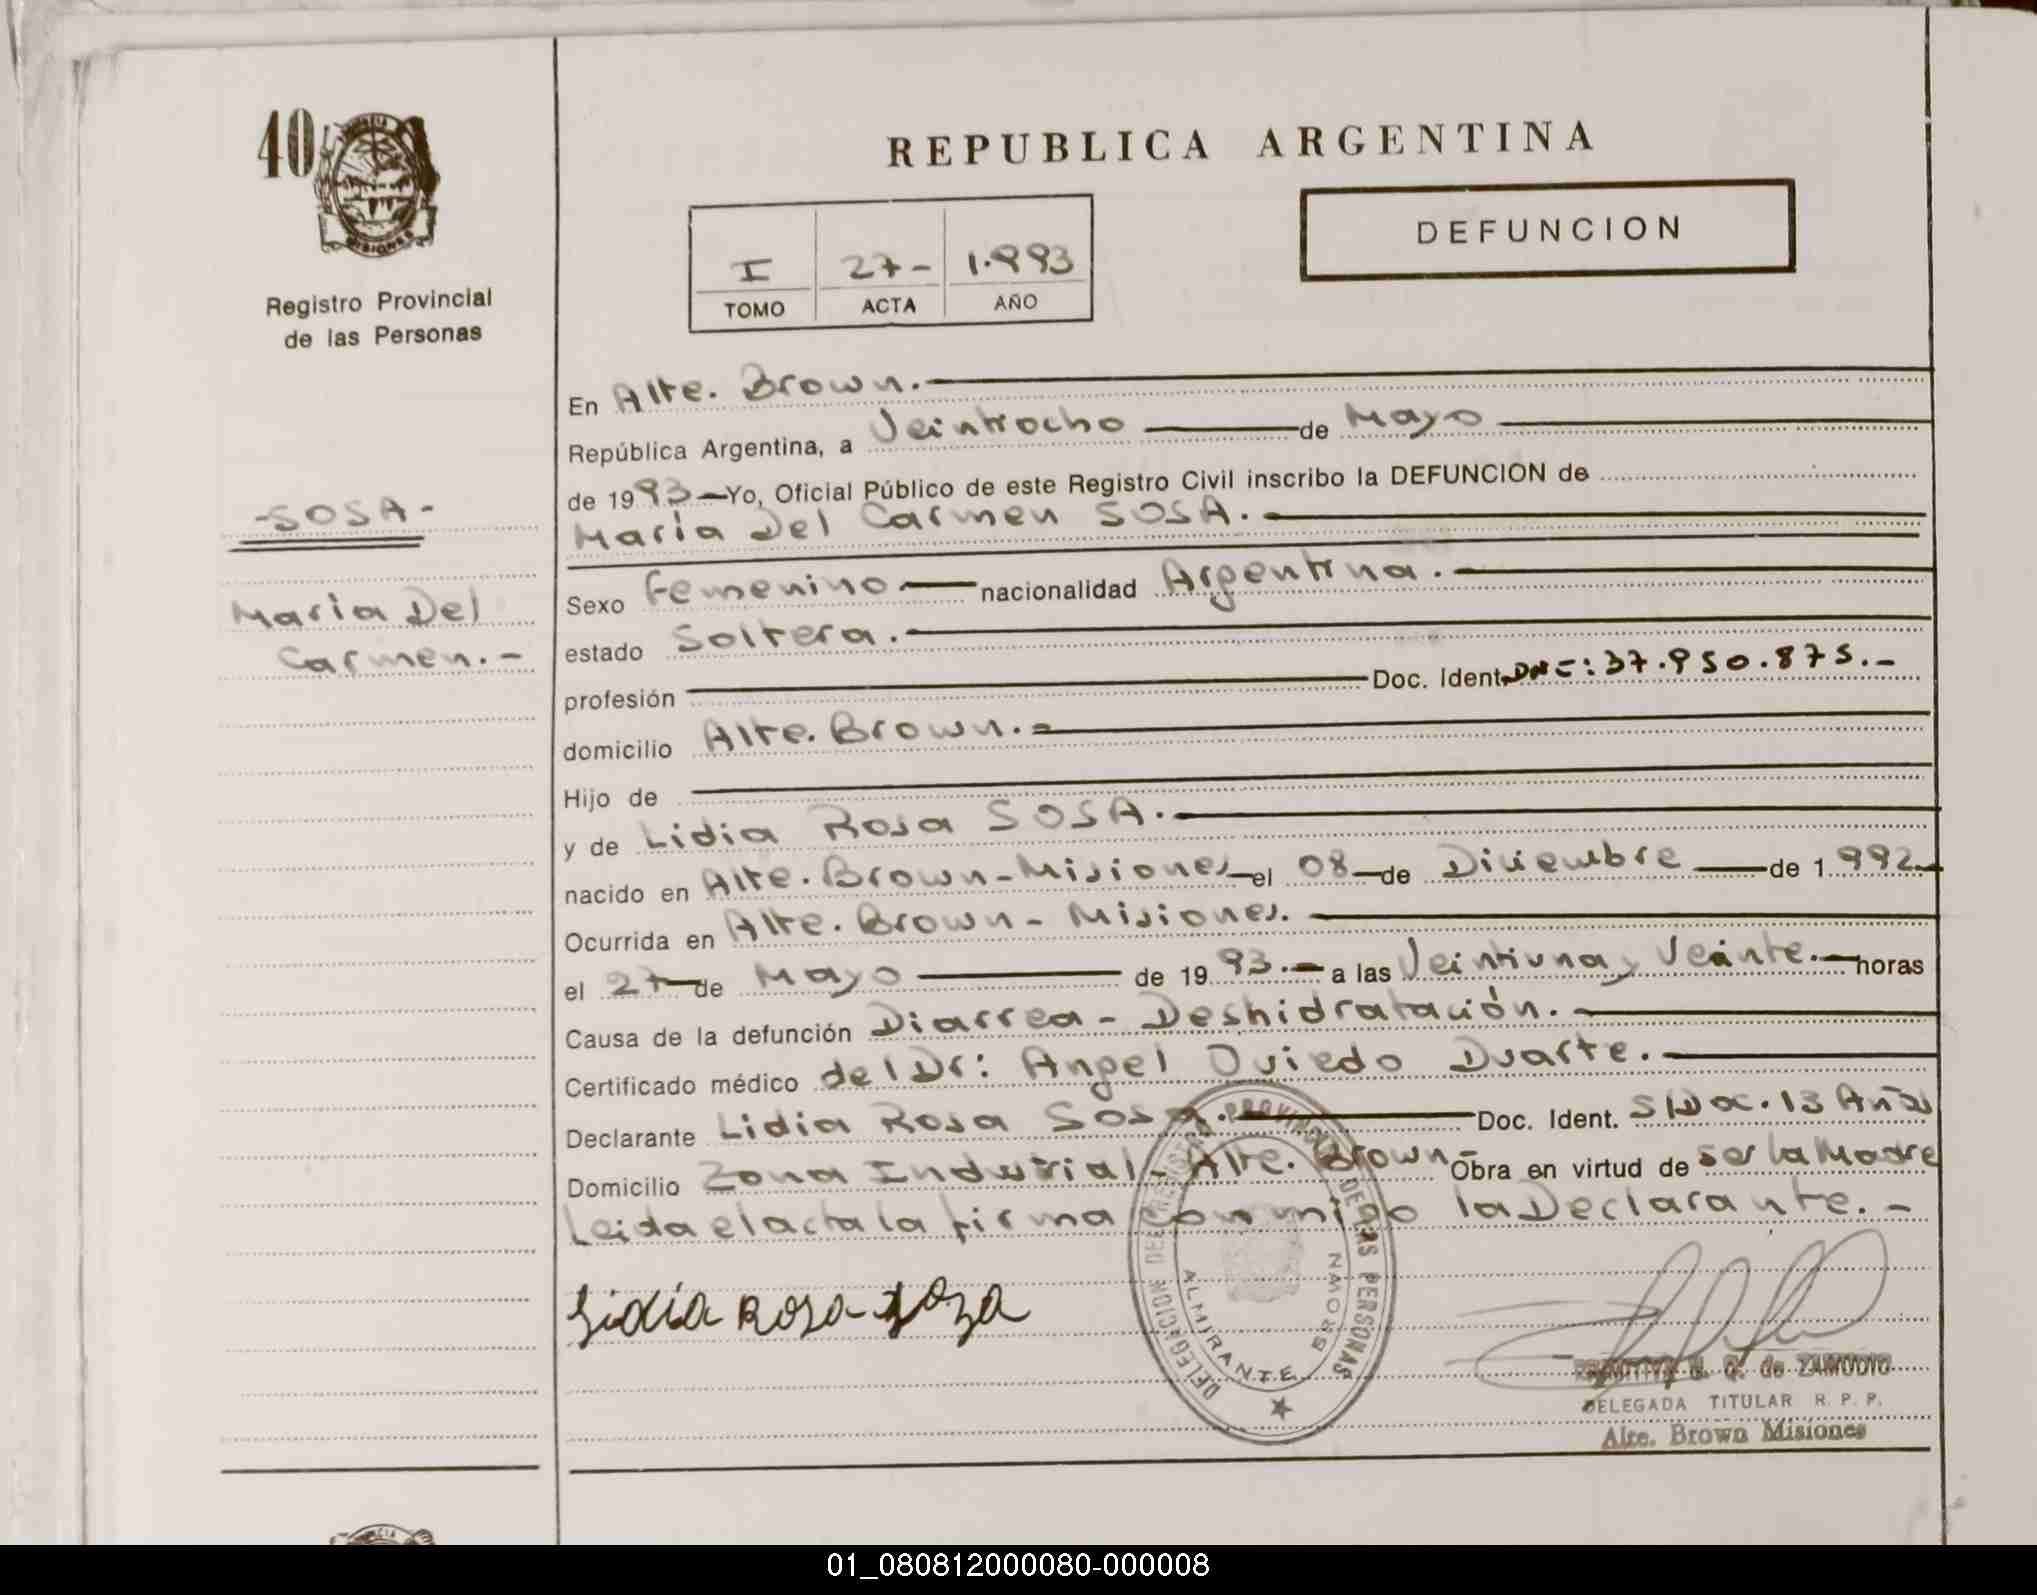 40
PROVINCIA DE
MISIONES
Registro Provincial
de las Personas
-SOSA-
María Del
Carmen.-
REPUBLICA ARGENTINA
I 27- 1.993
TOMO ACTA AÑO
DEFUNCION
En Alte. Brown.
República Argentina, a Veintiocho de Mayo
de 1993 Yo, Oficial Público de este Registro Civil inscribo la DEFUNCION de
María Del Carmen SOSA.
Sexo Femenino nacionalidad Argentina.
estado Soltera.
profesión Doc. Ident. DNI: 37.950.875.-
domicilio Alte. Brown.-
Hijo de
y de Lidia Rosa SOSA.
nacido en Alte. Brown-Misiones el 08 de Diciembre de 1992.
Ocurrida en Alte. Brown - Misiones.
el 27 de Mayo de 1993.- a las Veintiuna y Veinte. horas
Causa de la defunción Diarrea - Deshidratación.
Certificado médico del Dr: Angel Oviedo Duarte.
Declarante Lidia Rosa Sosa. Doc. Ident. S/Doc. 13 Años
Domicilio Zona Industrial - Alte. Brown- Obra en virtud de ser la Madre
Leida el acta la firma conmigo la Declarante.-
Lidia Rosa Soza
DELEGACION DEL REGISTRO PROVINCIAL DE LAS PERSONAS
ALMIRANTE BROWN
G. de ZAMUDIO
DELEGADA TITULAR R. P. P.
Alte. Brown Misiones
01_080812000080-000008